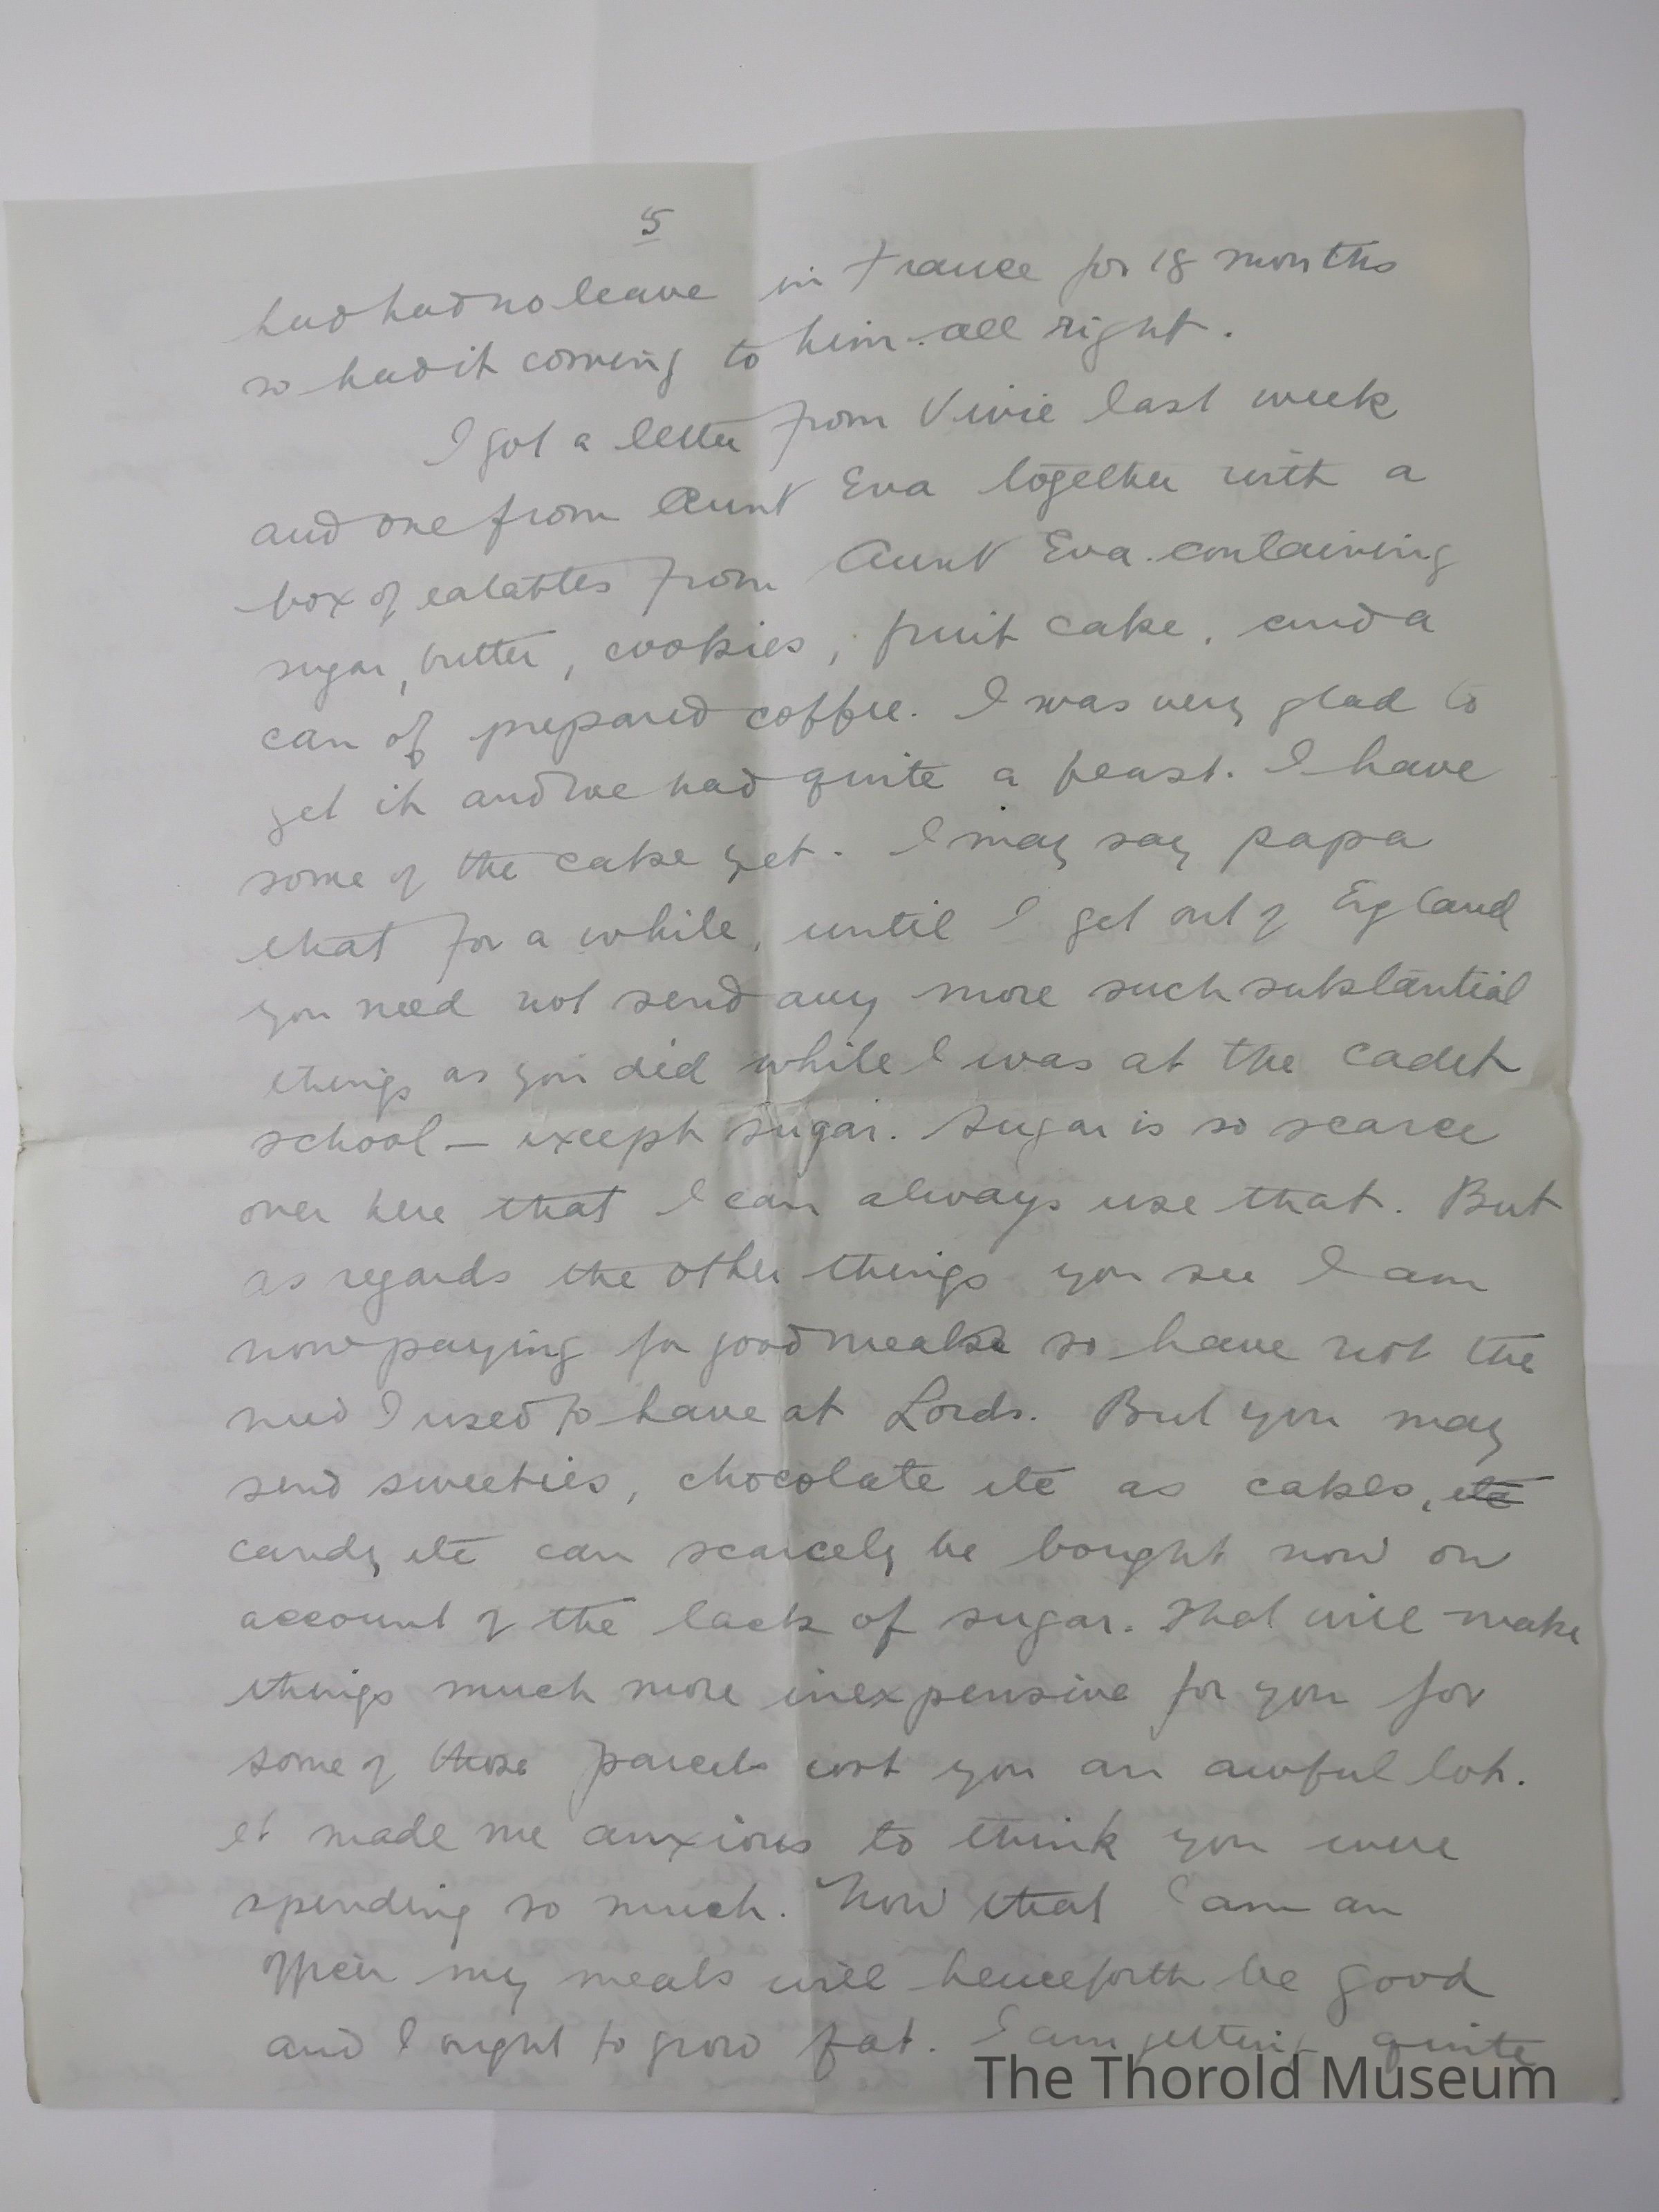 5
had had no leave in France for 18 months
so had it coming to him all right.
I got a letter from Vivie last week
and one from Aunt Eva together with a
box of eatables from Aunt Eva containing
sugar, butter, cookies, fruit cake, and a
can of prepared coffee. I was very glad to
get it and we had quite a feast. I have
some of the cake yet. I may say papa
that for a while, until I get out of England
you need not send any more such substantial
things as you did while I was at the cadet
school – except sugar. Sugar is so scarce
over here that I can always use that. But
as regards the other things you see I am
now paying for good meals so have not the
need I used to have at Lords. But you may
send sweeties, chocolate etc as cakes, etc
candy etc can scarcely be bought now on
account of the lack of sugar. That will make
things much more inexpensive for you for
some of those parcels cost you an awful lot.
It made me anxious to think you were
spending so much. Now that I am an
officer my meals will henceforth be good
and I ought to grow fat. I am getting quite
The Thorold Museum